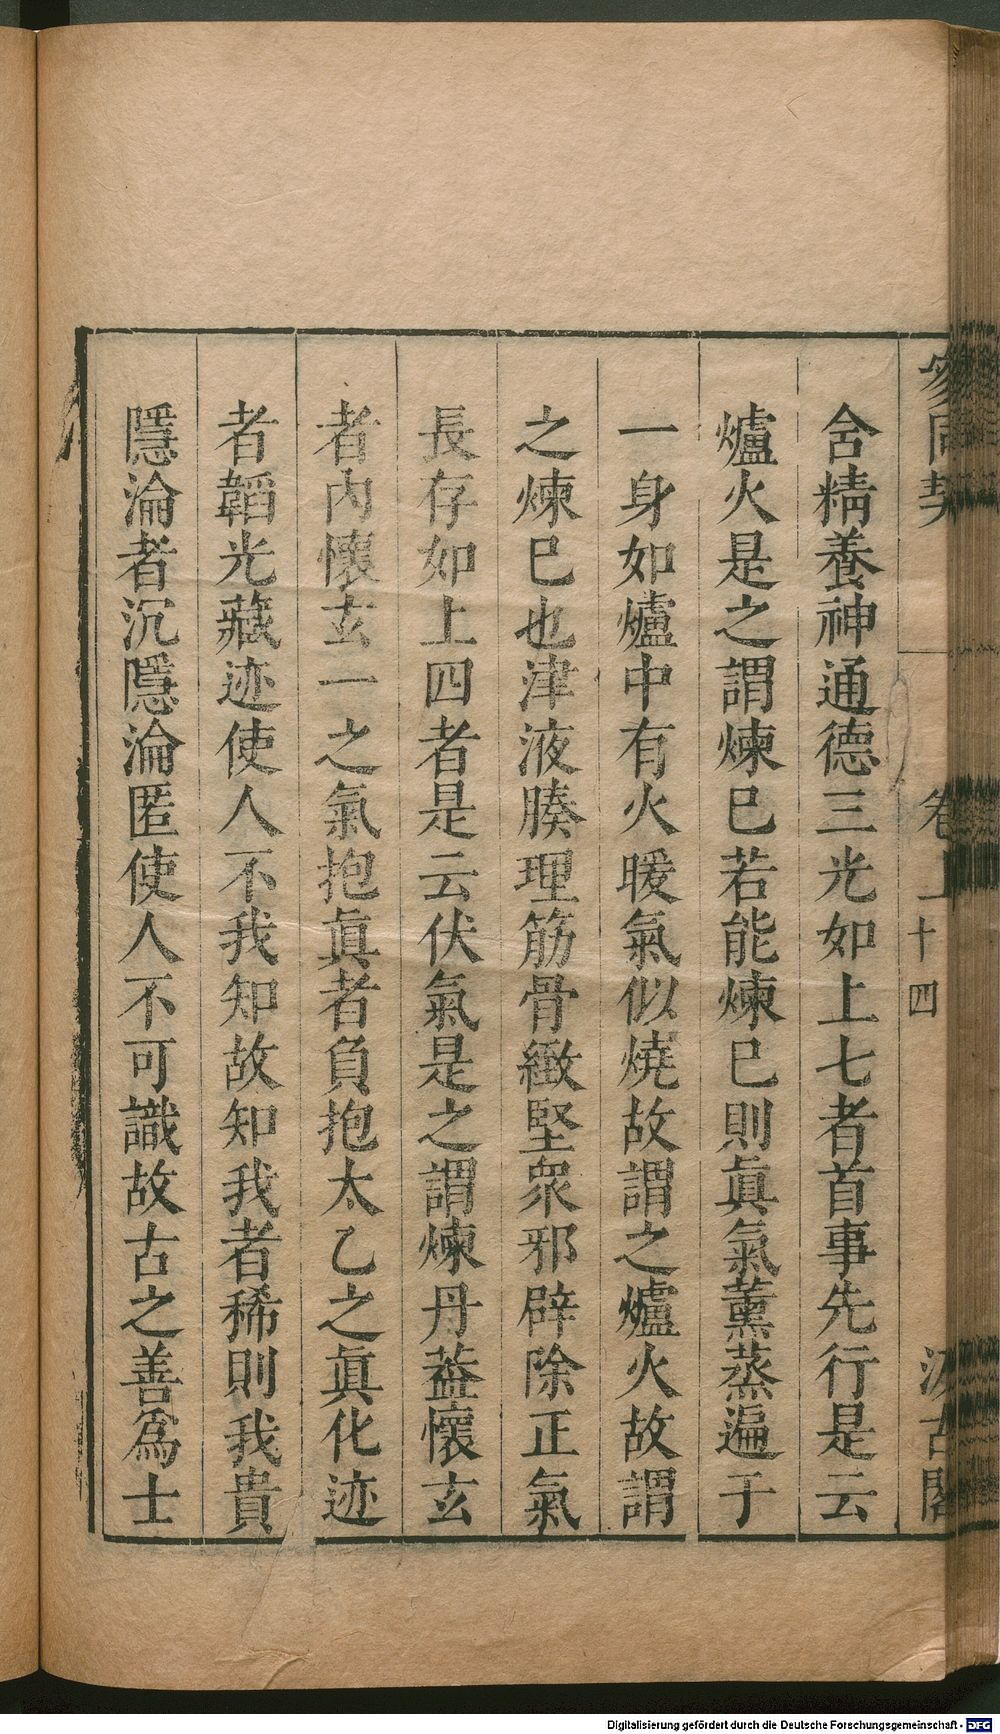 參同契 卷 十四 汲古閣
含精養神通德三光如上七者首事先行是云
爐火是之謂煉巳若能煉巳則眞氣薰蒸遍于
一身如爐中有火暖氣似燒故謂之爐火故謂
之煉巳也津液腠理筋骨緻堅衆邪辟除正氣
長存如上四者是云伏氣是之謂煉丹葢懷玄
者內懷玄一之氣抱眞者負抱太乙之眞化迹
者韜光藏迹使人不我知故知我者稀則我貴
隱淪者沉隱淪匿使人不可識故古之善爲士
Digitalisierung gefördert durch die Deutsche Forschungsgemeinschaft - DFG